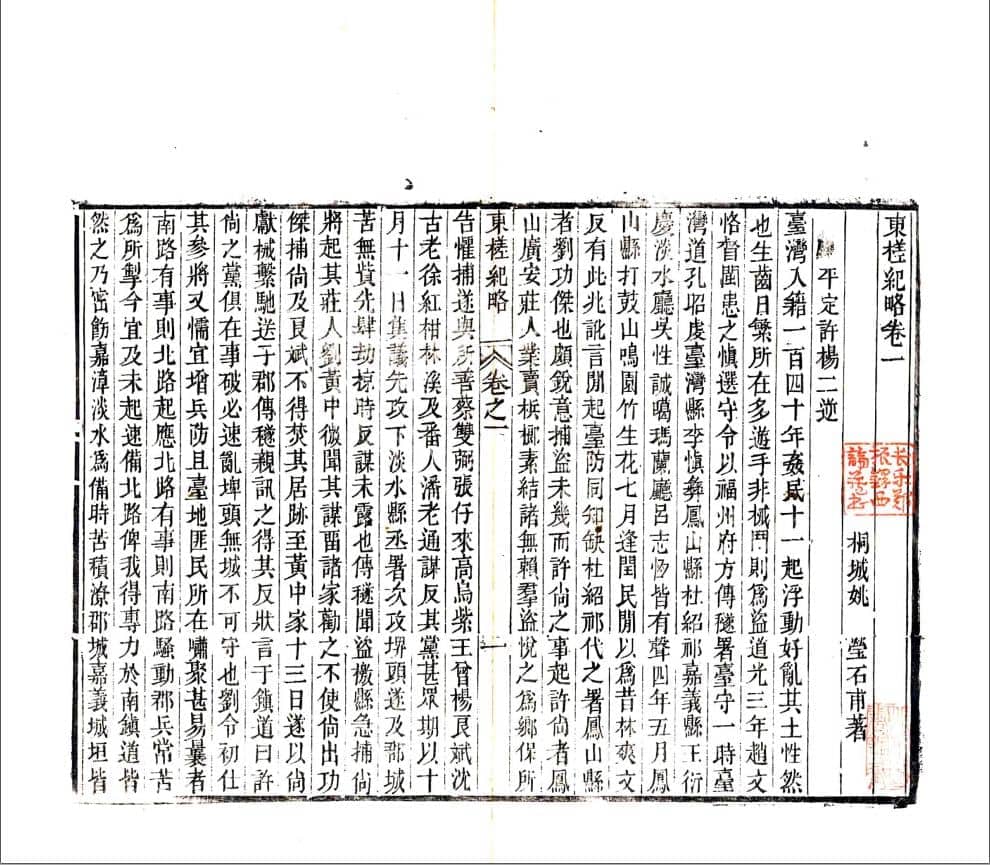 東槎紀略卷一
桐城姚 瑩石甫著
平定許楊二逆
臺灣入籍一百四十年姦民十一起浮動好亂其土性然
也生齒日繁所在多遊手非械鬥則爲盜道光三年趙文
恪督閩患之愼選守令以福州府方傳穟署臺守一時臺
灣道孔昭虔臺灣縣李愼彝鳳山縣杜紹祁嘉義縣王衍
慶淡水廳吳性誠噶瑪蘭廳呂志恆皆有聲四年五月鳳
山縣打鼓山鳴園竹生花七月逢閏民閒以爲昔林爽文
反有此兆訛言閒起臺防同知缺杜紹祁代之署鳳山縣
者劉功傑也頗銳意捕盜未幾而許尚之事起許尚者鳳
山廣安莊人業賣檳榔素結諸無賴羣盜悅之爲鄉保所
東槎紀略 卷之一 一
告懼捕遂與所善蔡雙弼張仔來高烏紫王曾楊良斌沈
古老徐紅柑林溪及番人潘老通謀反其黨甚眾期以十
月十一日集議先攻下淡水縣丞署次攻埤頭遂及郡城
苦無貲先肆劫掠時反謀未露也傳穟聞盜檄縣急捕尚
將起其莊人劉黃中微聞其謀畱諸家勸之不使尚出功
傑捕尚及良斌不得焚其居跡至黃中家十三日遂以尚
獻械繫馳送于郡傳穟親訊之得其反狀言于鎮道曰許
尚之黨俱在事破必速亂埤頭無城不可守也劉令初仕
其參將又懦宜增兵防且臺地匪民所在嘯聚甚易曩者
南路有事則北路起應北路有事則南路騷動郡兵常苦
爲所掣今宜及未起速備北路俾我得專力於南鎮道皆
然之乃密飭嘉漳淡水爲備時苦積潦郡城嘉義城垣皆